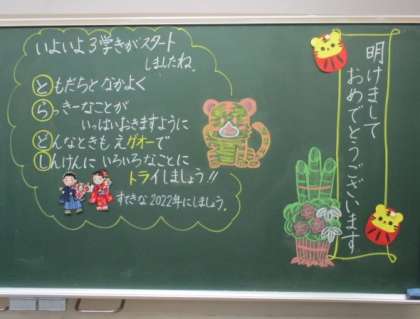 明けまして
おめでとうございます
いよいよ3学きがスタート
しましたね。
ともだちとなかよく
らっきーなことが
いっぱいおきますように
どんなときもえガオーで
しんけんにいろいろなことに
トライしましょう!!
すてきな2022年にしましょう。